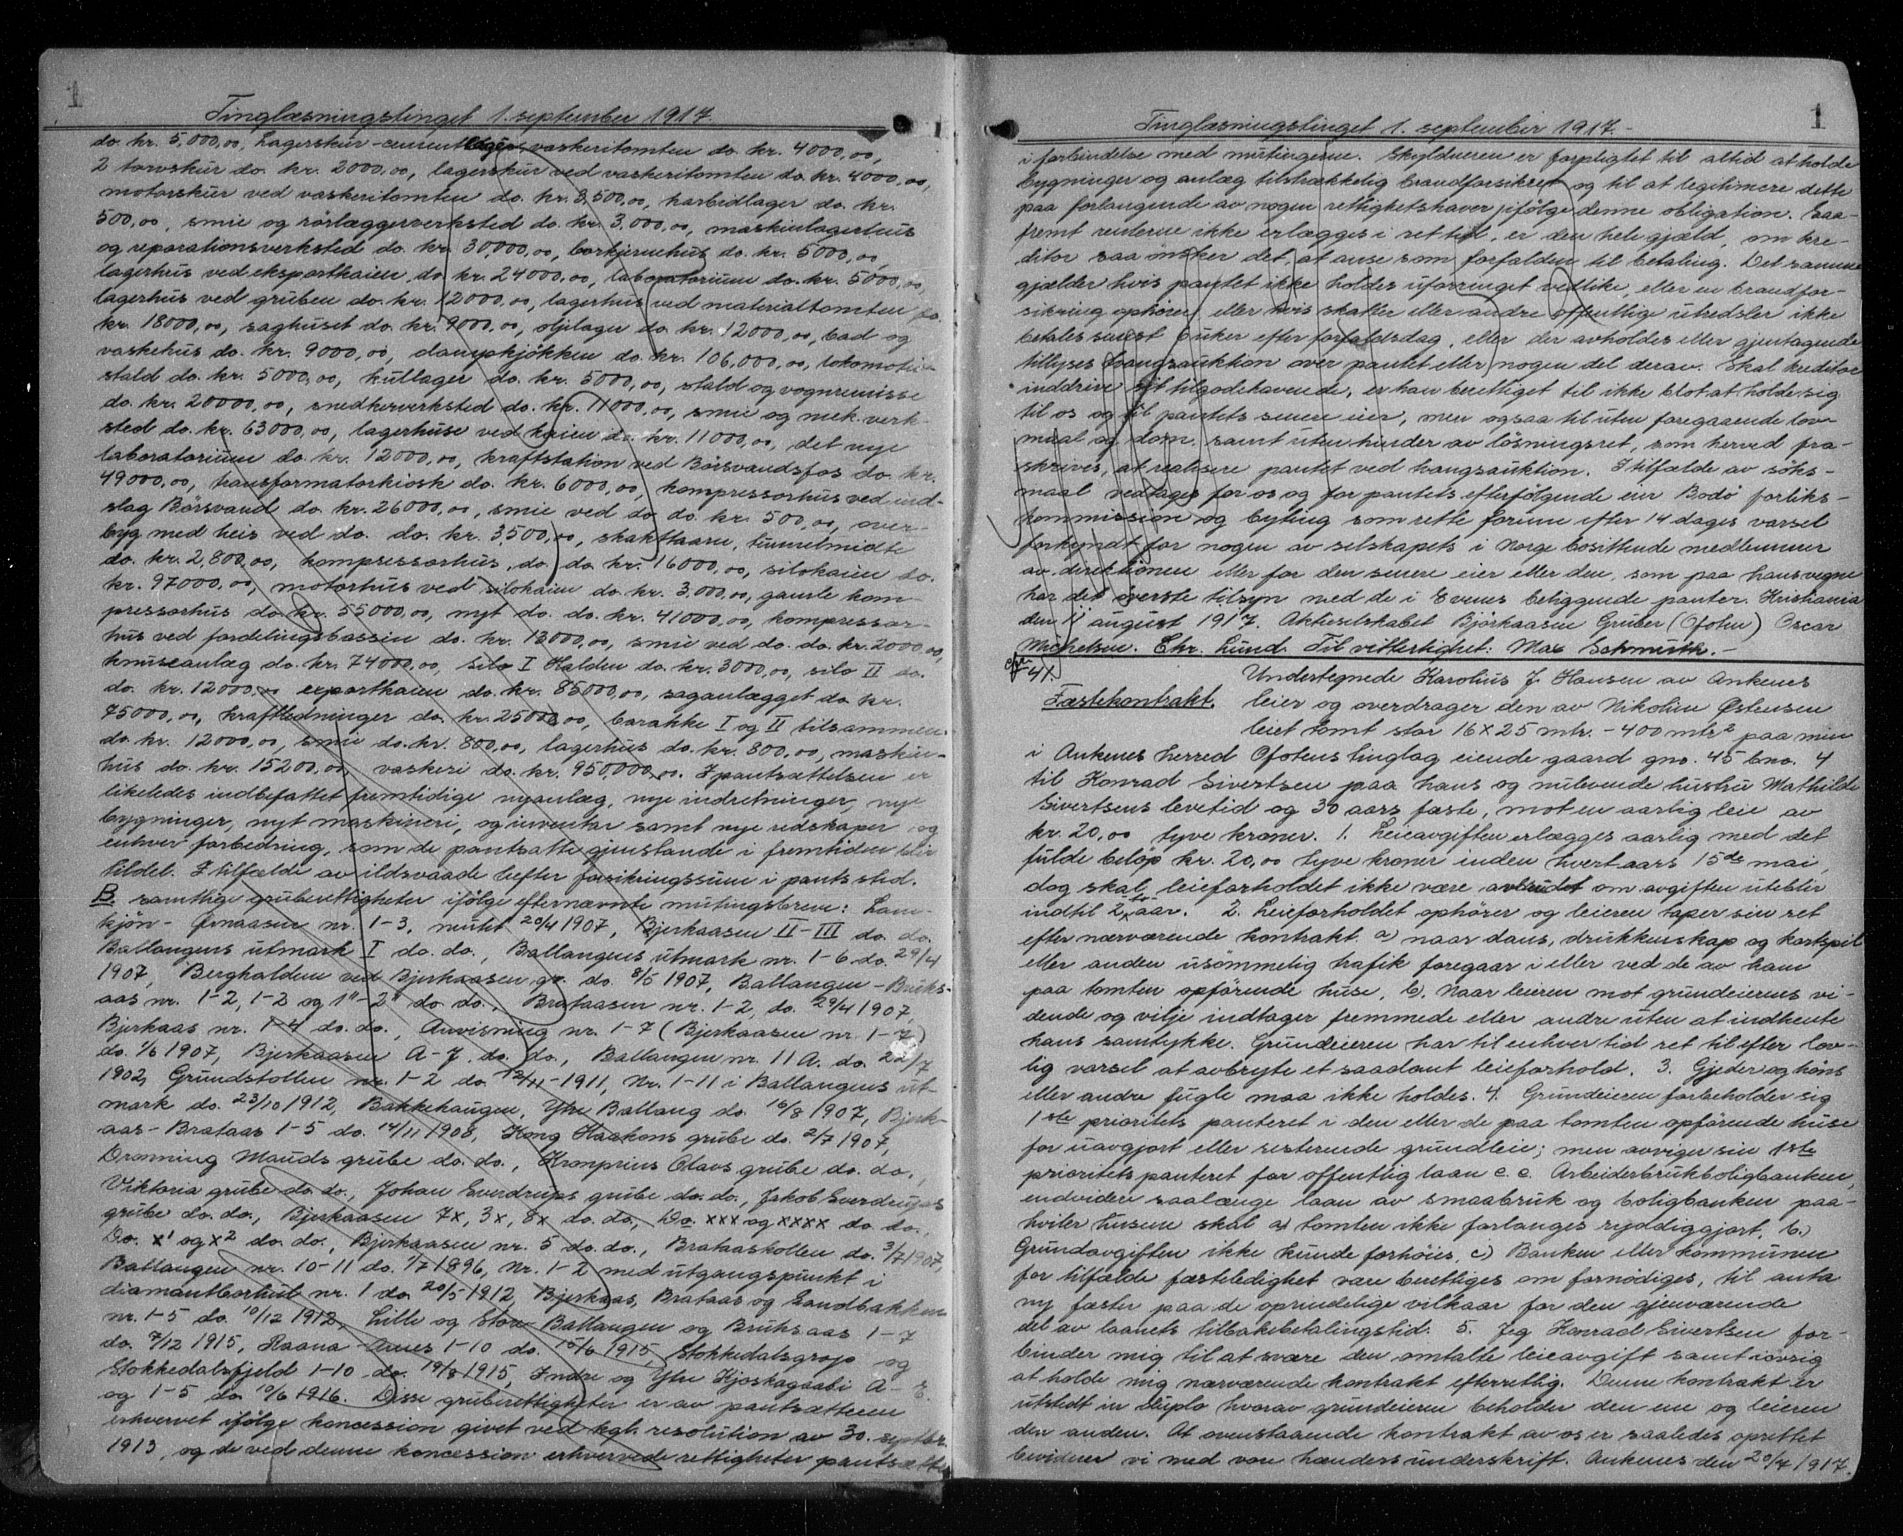 1
Tinglæsningstinget 1. september 1917.
do. kr. 5,000,00, Lagerskur-cementlager vaskeritomten do. kr. 4000,00,
2 torvskur do. kr. 2000,00, lagerskur ved vaskeritomten do. kr. 4000,00,
motorskur ved vaskeritomten do. kr. 3,500,00, karbidlager do. kr.
500,00, smie og rörlæggerverksted do. kr. 3,000,00, maskinlagerhus
og reparationsverksted do. kr. 30,000,00, borkjernehus do. kr. 5000,00,
lagerhus ved eksportkaien do. kr. 24000,00, laboratorium do. kr. 5000,00,
lagerhus ved gruben do. kr. 12000,00, lagerhus ved materialtomten do.
kr. 18000,00, saghuset do. kr. 9000,00, oljelager do. kr. 12000,00, bad og
vaskehus do. kr. 9000,00, dampkjökken do. kr. 106,000,00, lokomotiv-
stald do. kr. 5000,00, kullager do. kr. 5000,00, stald og vognremisse
do. kr. 20000,00, snedkerverksted do. kr. 11000,00, smie og mek. verk-
sted do. kr. 63000,00, lagerhuse ved kaien do. kr. 11000,00, det nye
laboratorium do. kr. 12000,00, kraftstation ved Börsvandsfos do. kr.
49000,00, transformatorkiosk do. kr. 6000,00, kompressorhus ved ind-
slag Börsvand do. kr. 26000,00, smie ved do do. kr. 500,00, over-
byg med heis ved do. do. kr. 3,500,00, skakttaarn, tunnelmidte
do. kr. 2,800,00, kompressorhus, do. do. kr. 16000,00, silokaien do.
kr. 97000,00, motorhus ved silokaien do. kr. 3,000,00, gamle kom-
pressorhus do. kr. 55000,00, nyt do. do. kr. 41000,00, kompressor-
hus ved fordelingsbassin do. kr. 13000,00, smie ved do. do. kr. 2000,00,
knuseanlæg do. kr. 74000,00, silo I Halden do. kr. 3000,00, silo II do.
do. kr. 12000,00 exportkaien do. kr. 85000,00, saganlægget do. kr.
75000,00, kraftledninger do. kr. 25000,00, barakke I og II tilsammen
do. kr. 12000,00, smie do. kr. 800,00, lagerhus do. kr. 800,00, maskin-
hus do. kr. 15200,00, vaskeri do. kr. 950,000,00. I pantsættelsen er
likeledes indbefattet fremtidige nyanlæg, nye indretninger, nye
bygninger, nyt maskineri, og inventar samt nye redskaper og
enhver forbedring, som de pantsatte gjenstande i fremtiden blir
tildel. I tilfælde av ildsvaade hefter forsikringssum i pants sted.
B samtlige gruberettigheter ifölge efternævnte mutingsbreve: Lan-
kjön- Ömaasen nr. 1-3, mutet 20/4 1907, Bjerkaasen II-III do. do.
Ballangens utmark I do. do., Ballangens utmark nr. 1-6 do. 29/4
1907, Berghalden ved Bjerkaasen gr. do. 8/5 1907, Ballangen - Bruks-
aas nr. 1-2, 1-2 og 1"-2" do. do., Brataasen nr. 1-2, do. 29/4 1907,
Bjerkaas nr. 1-4 do. do., Anvisning nr. 1-7 (Bjerkaasen nr. 1-7)
do. 1/6 1907, Bjerkaasen A-J do. do., Ballangen nr. 11 A. do. 22/7
1902, Grundstollen nr. 1-2 do. 12/11-1911, Nr. 1-11 i Ballangens ut-
mark do. 23/10 1912, Bakkehaugen, Ytre Ballang do. 16/8 1907, Bjerk-
aas- Brataas 1-5 do. 14/11 1908, Kong Haakons grube do. 2/7 1907,
Dronning Mauds grube do. do., Kronprins Olavs grube do. do.,
Viktoria grube do. do., Johan Sverdrups grube do. do., Jakob Sverdrups
grube do. do., Bjerkaasen 7x, 3x, 8x do. do., Do. xxx og xxxx do. do.,
Do. x1 og x2 do. do., Bjerkaasen nr. 5 do. do., Brataaskollen do. 3/7 1907,
Ballangen nr. 10-11 do. 1/7 1896, Nr. 1-2 med utgangspunkt i
diamantborhul nr. 1 do. 20/5 1912, Bjerkaas, Brataas og Sandbakken
nr. 1-5 do. 10/12 1912, Lille og Store Ballangen og Bruksaas 1-7
do. 7/12 1915, Raana- Arnes 1-10 do. 15/6 1915, Stokkedalsgrop og
Stokkedalsfjeld 1-10 do. 19/8 1915, Indre og Ytre Kjoskagaabi A-E
og 1-5 do. 10/6 1916. Disse gruberettigheter er av pantsætteren
erhvervet ifölge koncession givet ved kgl. resolution av 30. septbr.
1913, og de ved denne koncession erhvervede rettigheter pantsætte
1
Tinglæsningstinget 1. september 1917.-
i forbindelse med mutingerne. Skyldneren er forpligtet til altid at holde
bygninger og anlæg tilstrækkelig brandforsikret og til at legitimere dette
paa forlangende av nogen rettighetshaver ifölge denne obligation. Saa-
fremt renterne ikke erlægges i ret tid, er den hele gjæld, om kre-
ditor saa önsker det, at anse som forfalden til betaling. Det samme
gjælder hvis pantet ikke holdes uforringet vedlike, eller en brandfor-
sikring ophörer, eller hvis skatter eller andre offentlige utredsler ikke
betales senest 6 uker efter forfaldsdag, eller der avholdes eller gjentagende
tillyses tvangsauktion over pantet eller nogen del derav. Skal kreditor
inddrive sit tilgodehavende, er han berettiget til ikke blot at holde sig
til os og til pantets senere eier, men ogsaa til uten foregaaende lov-
maal og dom, samt uten hinder av lösningsret, som herved fra-
skrives, at realisere pantet ved tvangsauktion. I tilfælde av söks-
maal vedtages for os og for pantets efterfölgende eier Bodö forliks-
kommission og byting som rette forum efter 14 dages varsel
forkyndt for nogen av selskapets i Norge bosittende medlemmer
av direktionen eller for den senere eier eller den, som paa hans vegne
har det överste tilsyn med de i Evenes beliggende panter. Kristiania
den 11 august 1917. Aktieselskabet Björkaasen Gruber (Ofoten) Oscar
Michelsen. Chr. Lund. Til vitterlighet: Max Schmitth.-
741. Undertegnede Karolius J. Hansen av Ankenes
Fæstekontrakt. leier og overdrager den av Nikoline Østensen
leiet tomt stor 16 x 25 mtr. - 400 mtr² paa min
i Ankenes herred Ofotens tinglag eiende gaard gno. 45 bno. 4
til Konrad Sivertsen paa hans og nulevende hustru Mathilde
Sivertsens levetid og 30 aars fæste, mot en aarlig leie av
kr. 20,00 tyve kroner. 1. Leieavgiften erlægges aarlig med det
fulde belöp kr. 20,00 tyve kroner inden hvert aars 15de mai,
dog skal leieforholdet ikke være avbrudt om avgiften utebliv
indtil 2 - to - aar. 2. Leieforholdet ophörer og leieren taper sin ret
efter nærværende kontrakt a) naar dans, drukkenskap og kortspil
eller anden usömmelig trafik foregaar i eller ved de av ham
paa tomten opförende huse, b. Naar leieren mot grundeierens vi-
dende og vilje indtager fremmede eller andre uten at indhente
hans samtykke. Grundeieren har til enhver tid ret til efter lov-
lig varsel at avbryte et saadant leieforhold. 3. Gjeder og höns
eller andre fugle maa ikke holdes. 4. Grundeieren forbeholder sig
1ste prioritets panteret i den eller de paa tomten opförende huse
for uavgjort eller resterende grundleie; men avviger sin 1ste
prioritets panteret for offentlig laan e. c. Arbeiderbrukboligbanken,
endvidere saalænge laan av smaabruk og boligbanken paa-
hviler husene skal a) tomten ikke forlanges ryddiggjort, b.)
Grundavgiften ikke kunde forhöies, c) Banken eller kommunen
for tilfælde fæsteledighet være berettiges om fornödiges, til anta
ny fæster paa de oprindelige vilkaar for den gjenværende
del av laanets tilbakebetalingstid. 5. Jeg Konrad Sivertsen for-
binder mig til at svære den omtalte leieavgift samt iövrig
at holde mig nærværende kontrakt efterrettlig. Denne kontrakt er
utstedt in duplo hvorav grundeieren beholder den ene og leieren
den anden. At ovenstaaende kontrakt av os er saaledes oprettet
bevidner vi med vore hænders underskrift. Ankenes den 20/4 1917.